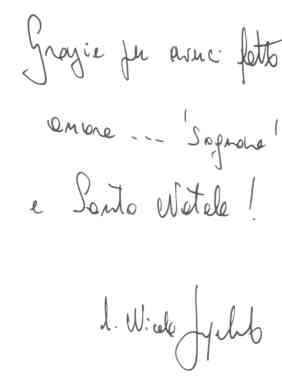 Grazie per averci fatto
ancora ... 'sognare'
e Santo Natale!
d. Nicola